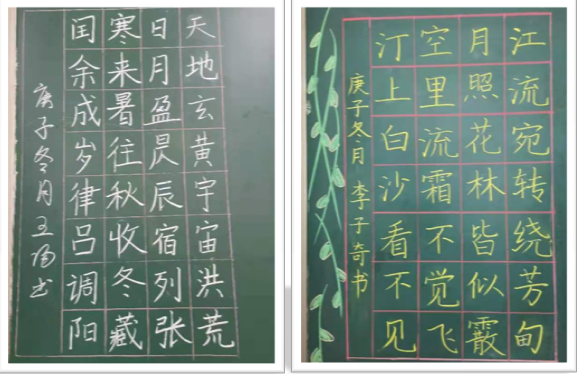 天地玄黄宇宙洪荒
日月盈昃辰宿列张
寒来暑往秋收冬藏
闰余成岁律吕调阳
庚子冬月王书
江流宛转绕芳甸
月照花林皆似霰
空里流霜不觉飞
汀上白沙看不见
庚子冬月 李子奇书